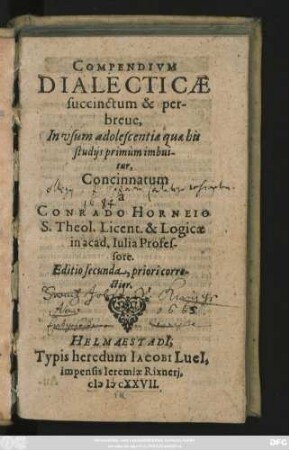 COMPENDIVM
DIALECTICÆ
succinctum & per-
breve,
In vsum adolescentiæ quæ his
studijs primùm imbui-
tur,
Concinnatum
à
1684
CONRADO HORNEIO
S. Theol. Licent. & Logicæ
in acad. Iulia Profes-
sore.
Editio secunda, priori corre-
ctior.
1665
HELMAESTADI,
Typis heredum IACOBI LucI,
impensis Ieremiæ Rixneri,
cIɔ Iɔ cXXVII.